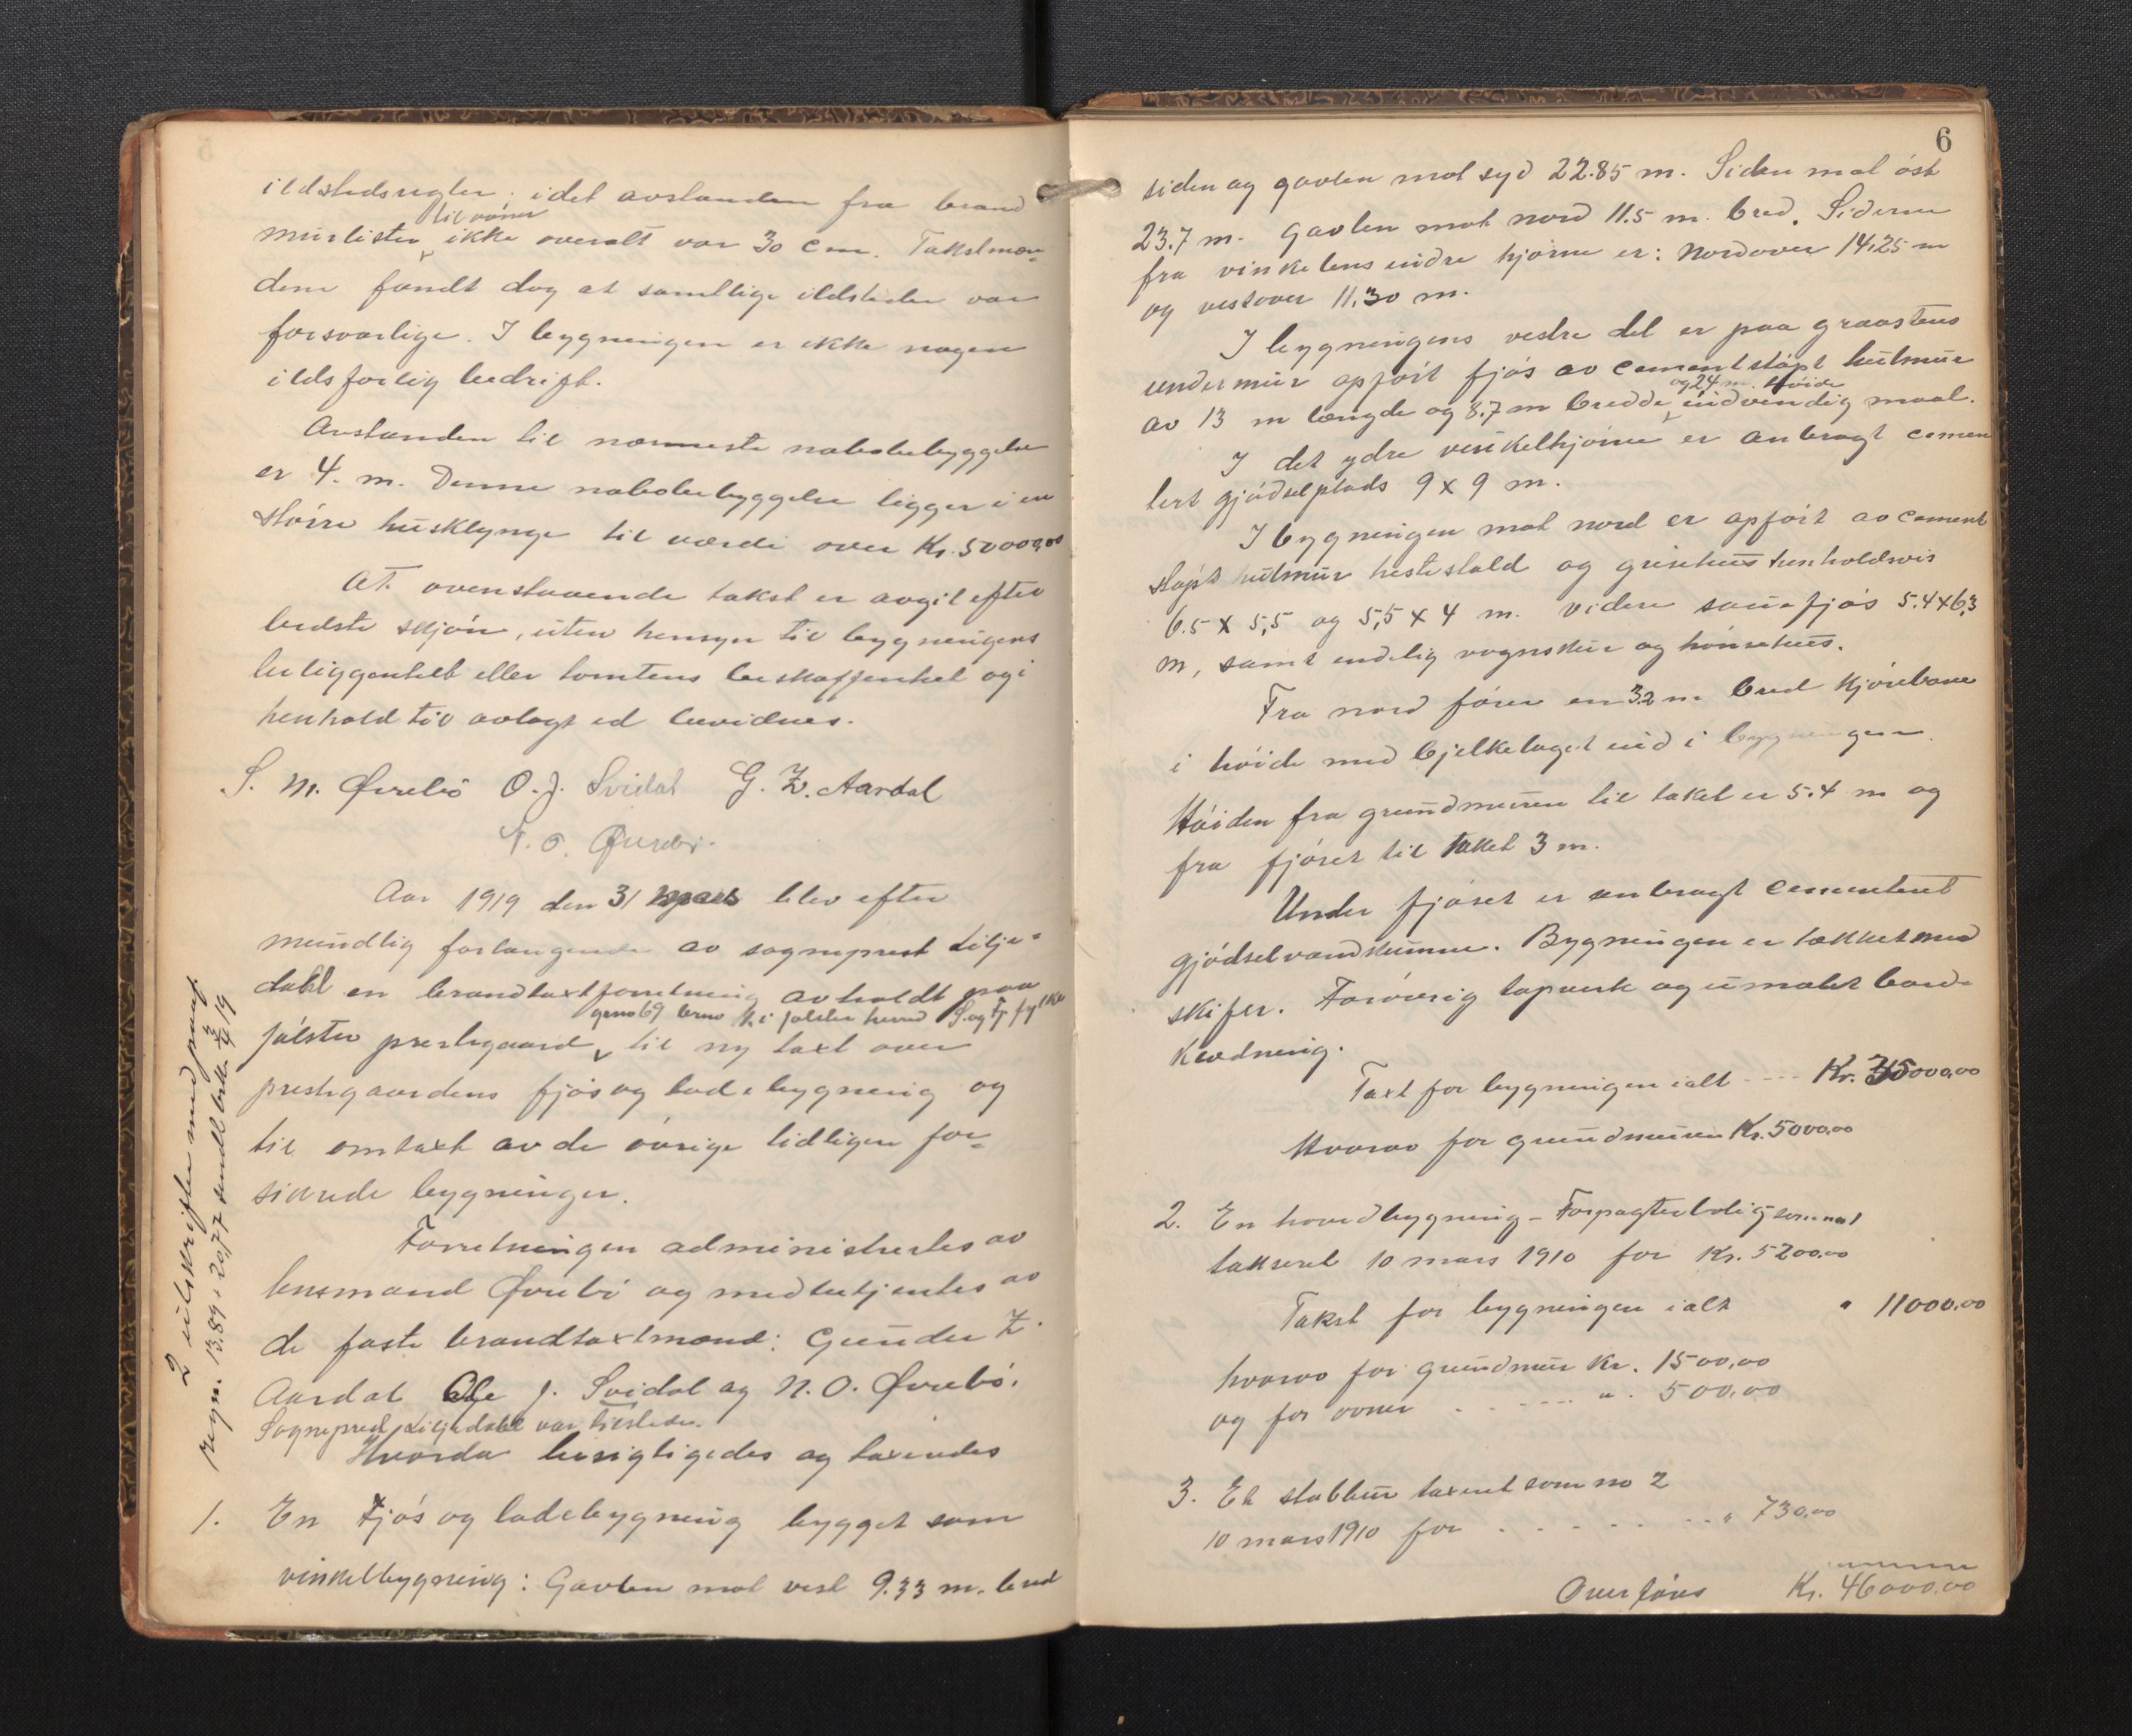 ildstedsregler, idet avstanden fra brand
murlister til ovner ikke overalt var 30 cm. Takstmæn-
dene fandt dog at samtlige ildsteder var
forsvarlige. I bygningen er ikke nogen
ildsfarlig bedrift.
Avstanden til nærmeste nabobebyggelse
er 4. m. Denne nabobebyggelse ligger i en
større husklynge til værdi over Kr. 50000,00
At ovenstaaende takst er avgit efter
bedste skjøn, uten hensyn til bygningens
beliggenhet eller tomtens beskaffenhet og i
henhold til avlagt ed bevidnes.
S. M. Øvrebö O. J. Svidal G. Z. Aardal
N. O. Øvrebö.
Aar 1919 den 31 mars blev efter
mundlig forlangende av sogneprest Lilje-
dahl en brandtaxtforretning avholdt paa
Jølster prestegaard, gno 69 brno 1 i Jølster herred S. og Fj. fylke til ny taxt over
prestegaardens fjøs og ladebygning og
til omtaxt av de øvrige tidligere for-
sikrede bygninger.
Forretningen administrertes av
lensmand Øvrebö og medbetjentes av
de faste brandtaxtmænd: Gunder Z.
Aardal Ole J. Svidal og N. O. Øvrebö.
Sogneprest Liljedahl var tilstede.
Hvorda besigtigedes og taxertes
1. En Fjøs og ladebygning bygget som
vinkelbygning: Gavlen mot vest 9.33 m. bred
2 utskrifter med paap
regn. 13.89 + 20,77 sendt
6
siden og gavlen mot syd 22.85 m. Siden mot øst
23.7 m. Gavlen mot nord 11.5 m. bred. Siderne
fra vinkelens indre hjørne er: Nordover 14,25 m
og vestover 11,30 m.
I bygningens vestre del er paa graastens
undermur opført fjøs av cementstøpt hulmur
av 13 m længde og 8.7 m bredde og 24 m. høide indvendig maal.
I det ydre vinkelhjørne er anbragt cemen
tert gjødselplads 9 x 9 m.
I bygningen mot nord er opført av cement
støpt hulmur hestestald og grisehus henholdsvis
6.5 x 5,5 og 5,5 x 4 m. videre sauefjøs 5.4 x 6,3
m, samt endelig vognskur og hønsehus.
Fra nord fører en 3.2 m bred kjørebane
i høide med bjelkelaget ind i bygningen.
Høiden fra grundmuren til taket er 5.4 m og
fra fjøset til taket 3 m.
Under fjøset er anbragt cementert
gjødselvandskumme. Bygningen er tækket med
skifer. Forøvrig tapverk og umalet bord-
klædning.
Taxt for bygningen ialt ---- Kr. 35000,00
Hvorav for grundmuren Kr. 5000,00
2. En hovedbygning - Forpagterbolig
takseret 10 mars 1910 for Kr. 5200.00
Takst for bygningen ialt " 11000,00
hvorav for grundmur Kr. 1500,00
og for ovner . . . . . . " 500,00
3. Et stabbur taxeret som no 2
10 mars 1910 for . . . . . . . " 730,00
Overføres Kr. 46000.00